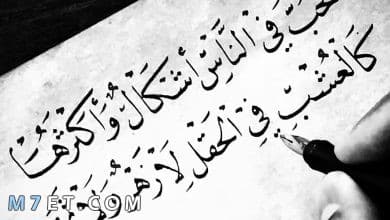 فِي النَّاسِ أَشْكَالٌ وَأَكْثَرُهَا
كَالْعُشْبِ فِي الْحَقْلِ لَا زَهْرٌ
M7ET.COM